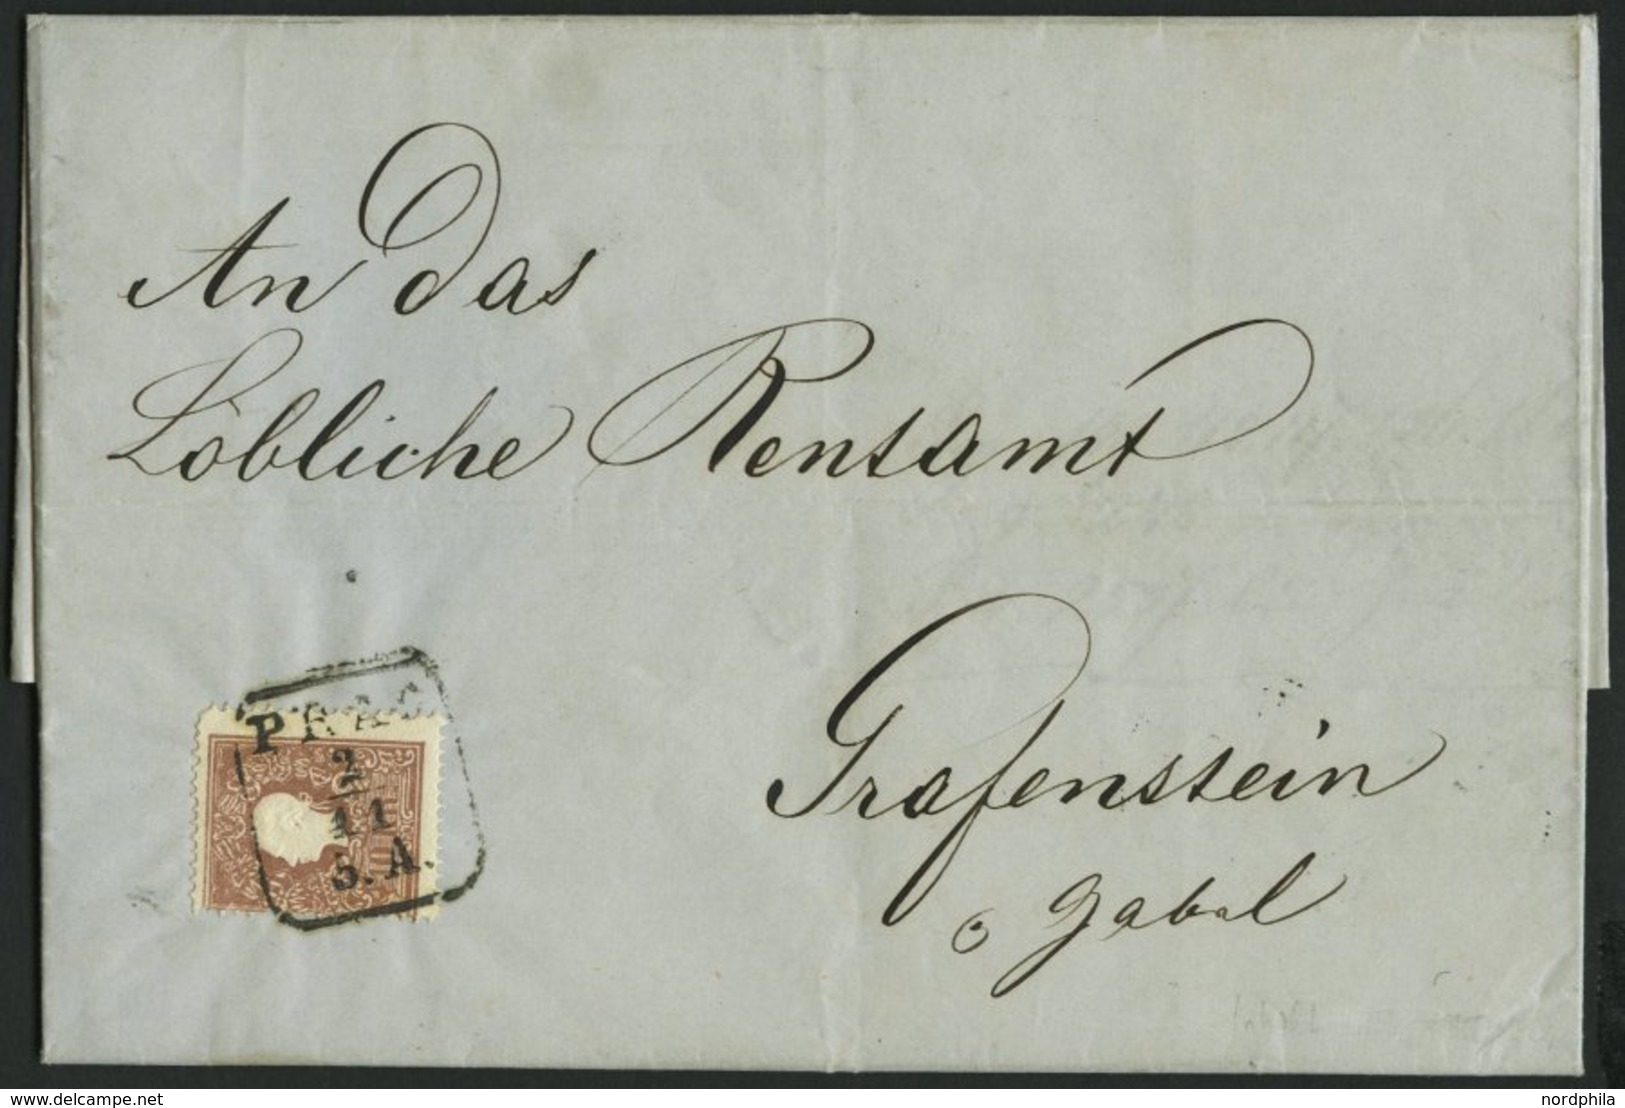 An das
Löbliche Rentsamt
PRAG
2
11
5. A.
Grafenstein
o Gabel
delcampe.net
nordphila